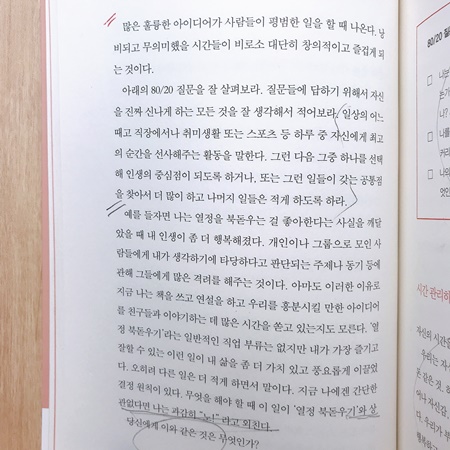 많은 훌륭한 아이디어가 사람들이 평범한 일을 할 때 나온다. 낭
비되고 무의미했을 시간들이 비로소 대단히 창의적이고 즐겁게 되
는 것이다.
아래의 80/20 질문을 잘 살펴보라. 질문들에 답하기 위해서 자신
을 진짜 신나게 하는 모든 것을 잘 생각해서 적어보라. 일상의 어느
때고 직장에서나 취미생활 또는 스포츠 등 하루 중 자신에게 최고
의 순간을 선사해주는 활동을 말한다. 그런 다음 그중 하나를 선택
해 인생의 중심점이 되도록 하거나, 또는 그런 일들이 갖는 공통점
을 찾아서 더 많이 하고 나머지 일들은 적게 하도록 하라.
예를 들자면 나는 열정을 북돋우는 걸 좋아한다는 사실을 깨달
았을 때 내 인생이 좀 더 행복해졌다. 개인이나 그룹으로 모인 사
람들에게 내가 생각하기에 타당하다고 판단되는 주제나 동기 등에
관해 그들에게 많은 격려를 해주는 것이다. 아마도 이러한 이유로
지금 나는 책을 쓰고 연설을 하고 우리를 흥분시킬 만한 아이디어
를 친구들과 이야기하는 데 많은 시간을 쏟고 있는지도 모른다. '열
정 북돋우기'라는 일반적인 직업 부류는 없지만 내가 가장 즐기고
잘할 수 있는 이런 일이 내 삶을 좀 더 가치 있고 풍요롭게 이끌었
다. 오히려 다른 일은 더 적게 하면서 말이다. 지금 나에겐 간단한
결정 원칙이 있다. 무엇을 해야 할 때 이 일이 '열정 북돋우기'와 상
관없다면 나는 과감히 "노!"라고 외친다.
당신에게 이와 같은 것은 무엇인가?
80/20 질
나를
나의
시간 관리하
자신의 시간을
우리는 자